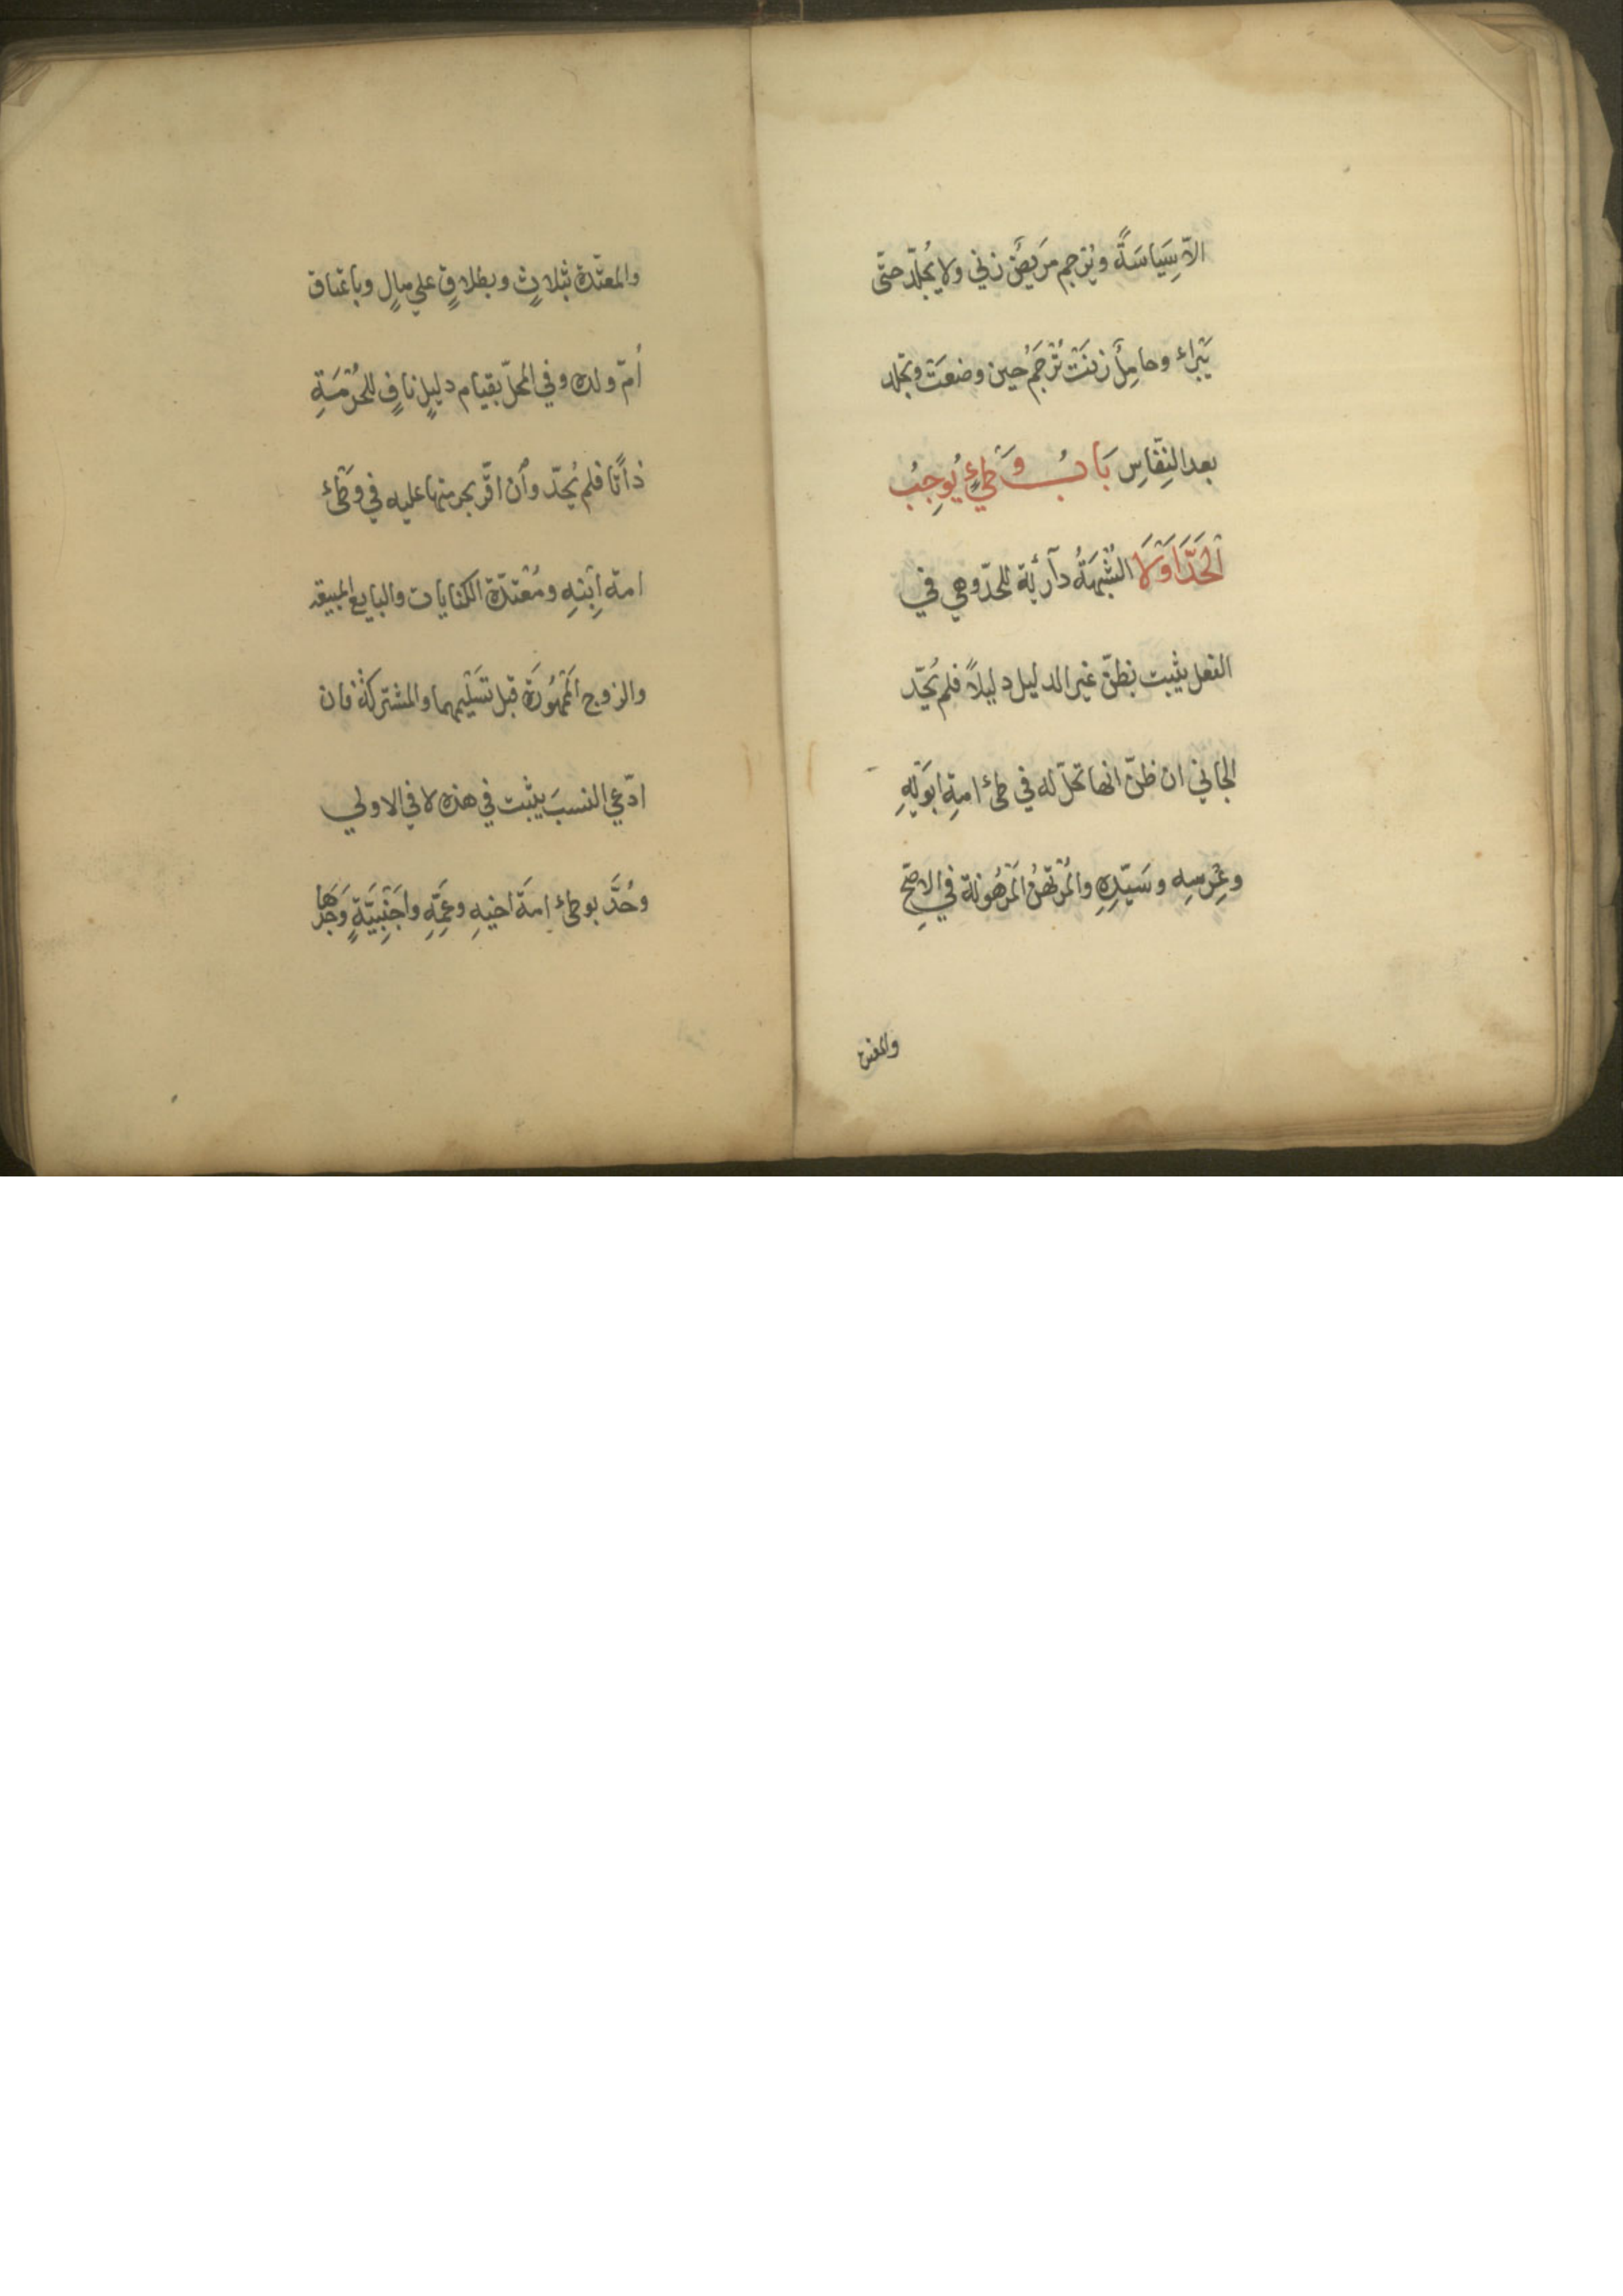 الّا سِيَاسَةً ويُرجم مَريضٌ زنٰي ولا يُجلّد حتّى
يَبْراءَ وحامِلٌ زنَتْ تُرْجَمُ حين وضعَتْ وتجلد
بعد النِّفاسِ بَابُ وَطْئٍ يُوجِبُ
الْحَدَّ اَوْلَا الشُّبْهَةُ دآرئة للحدّ وهي في
الفعل يثبت بظنّ غير الدليل دليلاً فلم يُحدّ
الجاني ان ظنّ انها تحلّ له في طئ امةِ ابوَيْهِ
وعِرسِه وسَيّدِهِ والمُرْتهنُ اَلمرْهُونة في الاصَحِّ
والمعتدة
والمعتّدة بثلاثٍ وبطلاقٍ علي مالٍ وباعْتاق
اُمّ ولده وفي المحلّ بقيام دليلٍ نافٍ للحُرْمَةِ
ذاتًا فلم يُحدّ وأن اقرّ بحرمتها عليه في وَطْئ
امة اِبْنهِ ومُعْتدّة الكنايات والبايع المبيعة
والزوج اَلمْهُورَة قبل تَسْليمهما والمشتركة فان
ادّعي النسبَ يثبت في هذه لا في الاولي
وحُدَّ بوطئ امَة اخيهِ وعَمِّهِ واَجْنبِيّةٍ وَجَدَها